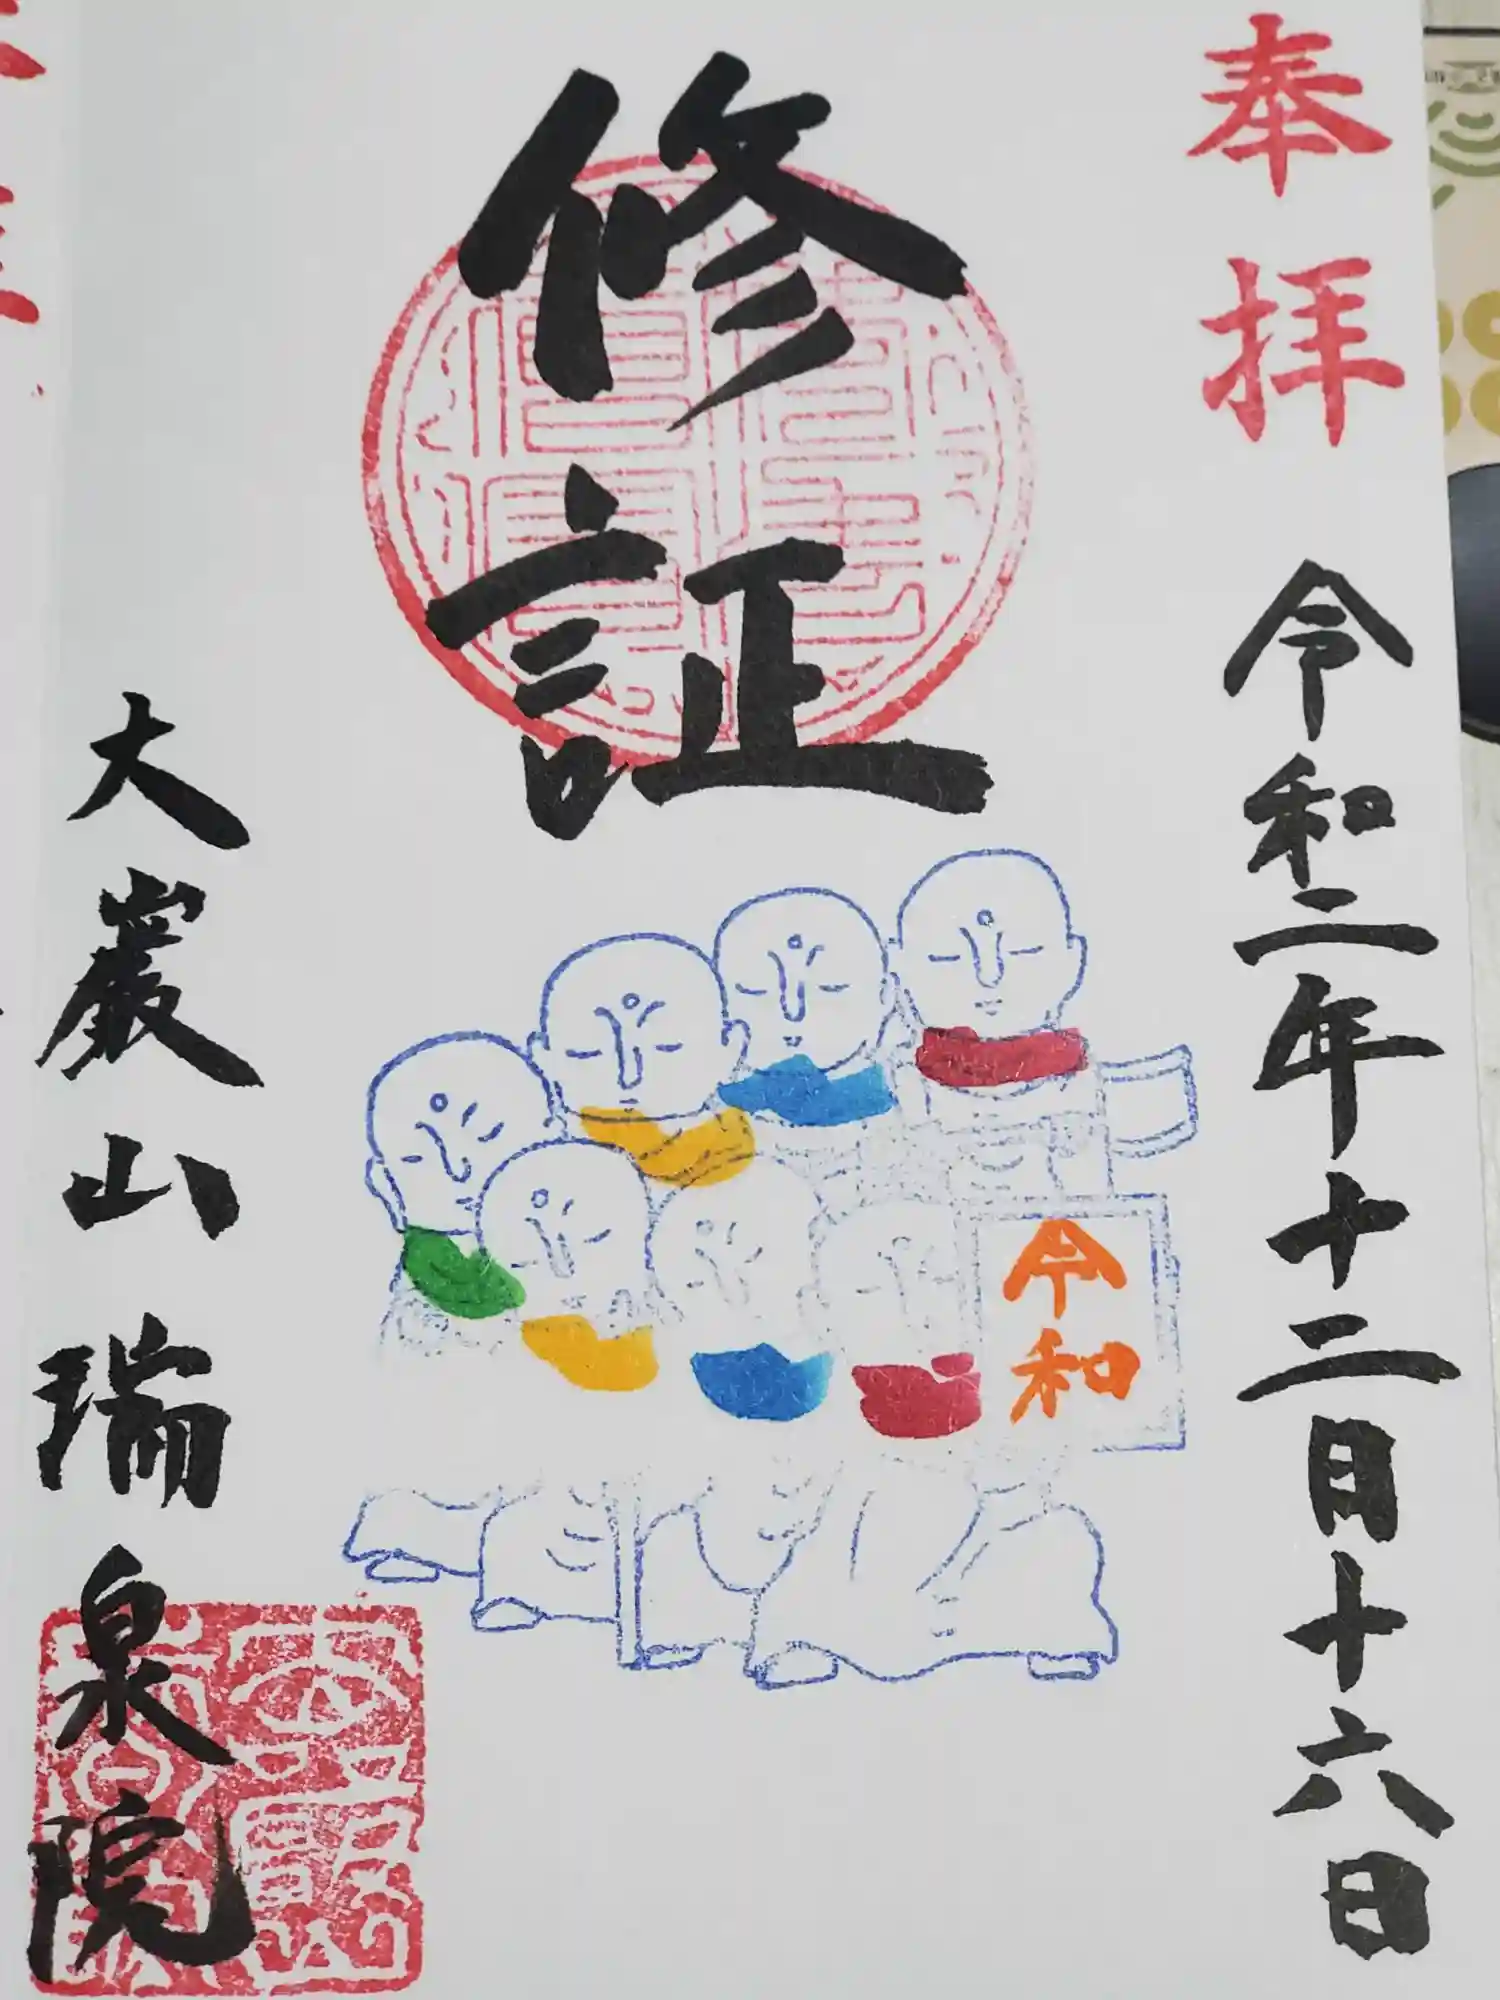 奉拝
令和二年十二日十六日
修証
令和
大巖山瑞泉院